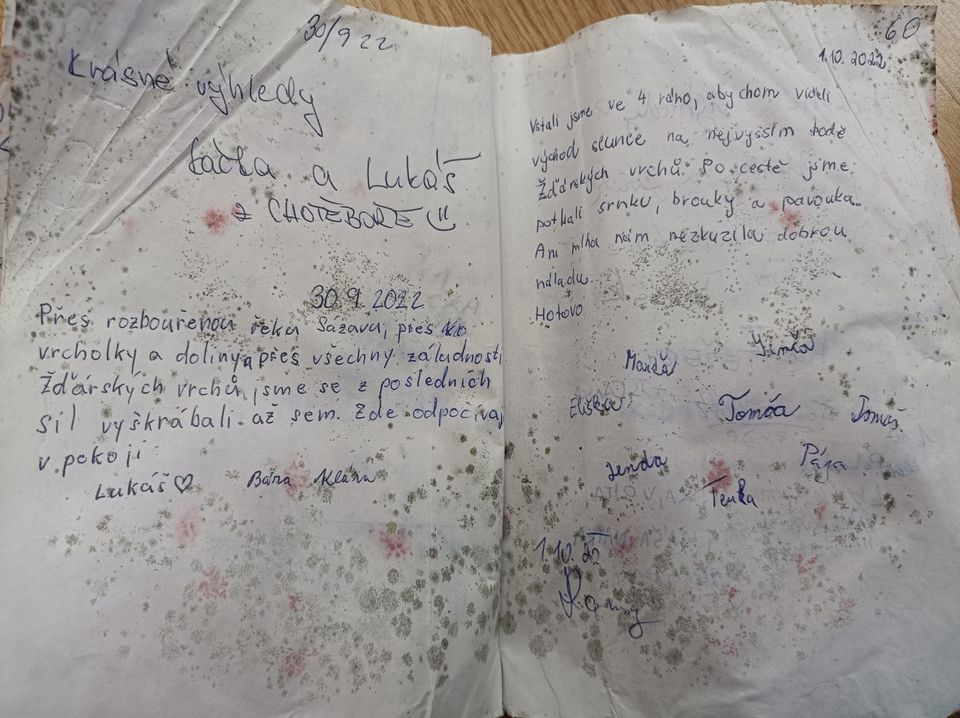 30/9 22
Krásné výhledy
Kačka a Lukáš
z CHOTĚBOŘE
30.9.2022
Přes rozbouřenou řeku Sázavu, přes
vrcholky a doliny, přes všechny záludnosti
Žďárských vrchů jsme se z posledních
sil vyškrábali až sem. Zde odpočívaj
v pokoji
Lukáš ♡ Bára Klára
60
1.10.2022
Vstali jsme ve 4 ráno, abychom viděli
východ slunce na nejvyšším bodě
Žďárských vrchů. Po cestě jsme
potkali srnku, brouky a pavouka..
Ani mlha nám nezkazila dobrou
náladu.
Hotovo
Jimča
Marťa
Eliška Tomča Tomáš
Jenda Pája
Terka
1.10.22